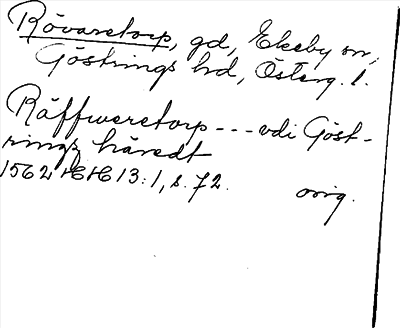 Rövaretorp, gd, Ekeby sn,
Göstrings hd, Österg. l.
Räffweretorp --- vdi Göst-
ringz häredt
1562 HH 13:1, s. 72. orig.